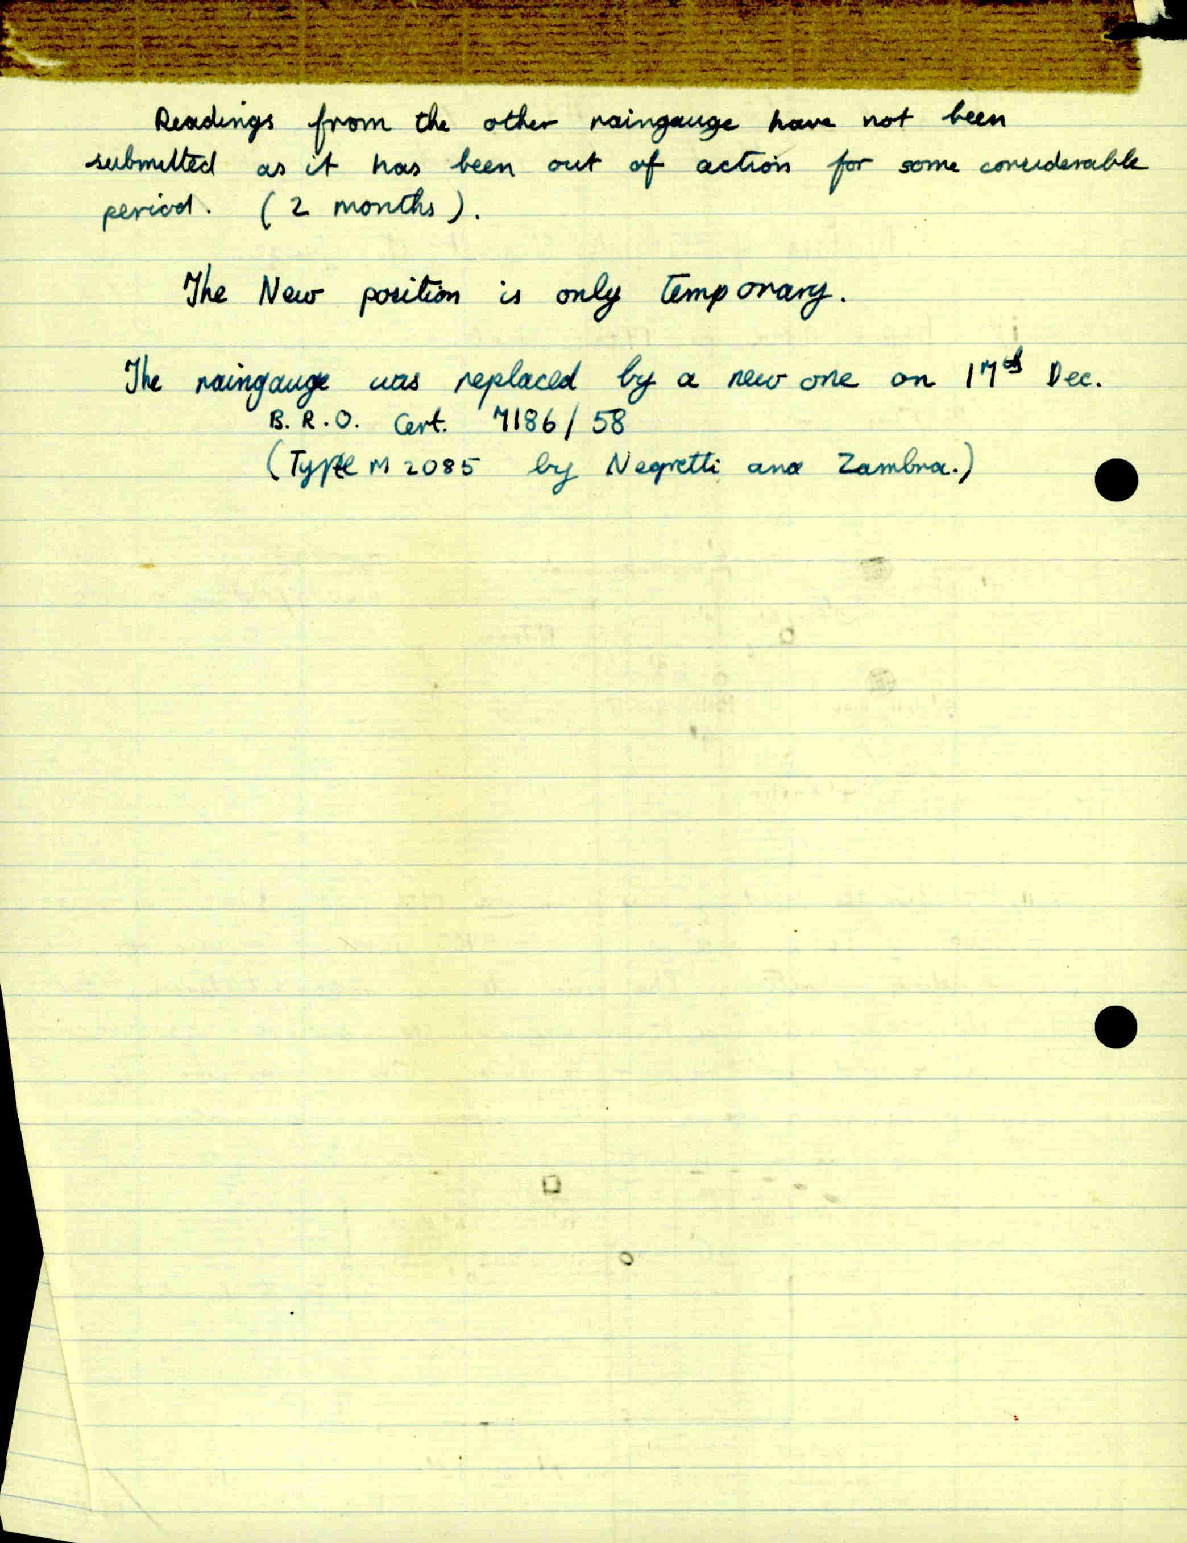 Readings from the other raingauge have not been
submitted as it has been out of action for some considerable
period. (2 months).
The New position is only temporary.
The raingauge was replaced by a new one on 17th Dec.
B.R.O. Cert. 7186/58
(Type M 2085 by Negretti and Zambra.)